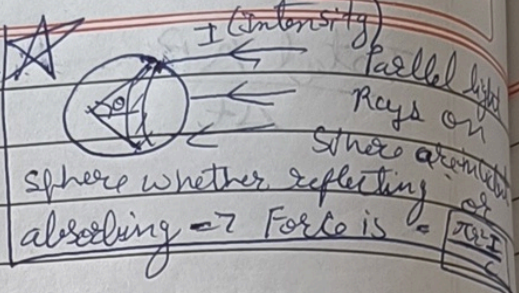 I (Intensity)
θ
Parllel light
Rays on
sphere
sphere whether reflecting or
absorbing → Force is = πr²I/c